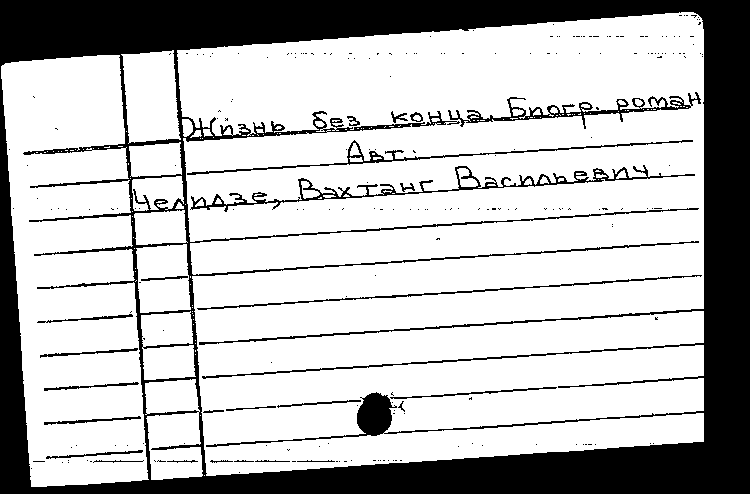 Жизнь без конца. Биогр. роман.
Авт.:
Челидзе, Вахтанг Васильевич.